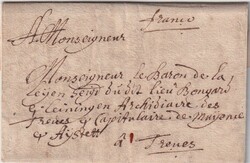 franco
A Monseigneur
Monseigneur le Baron de la
Leyen seigr dudit lieu Bongard
& Leiningen Archidiacre des
Treves & Capitulaire de Mayence
& Aystett
à Treves